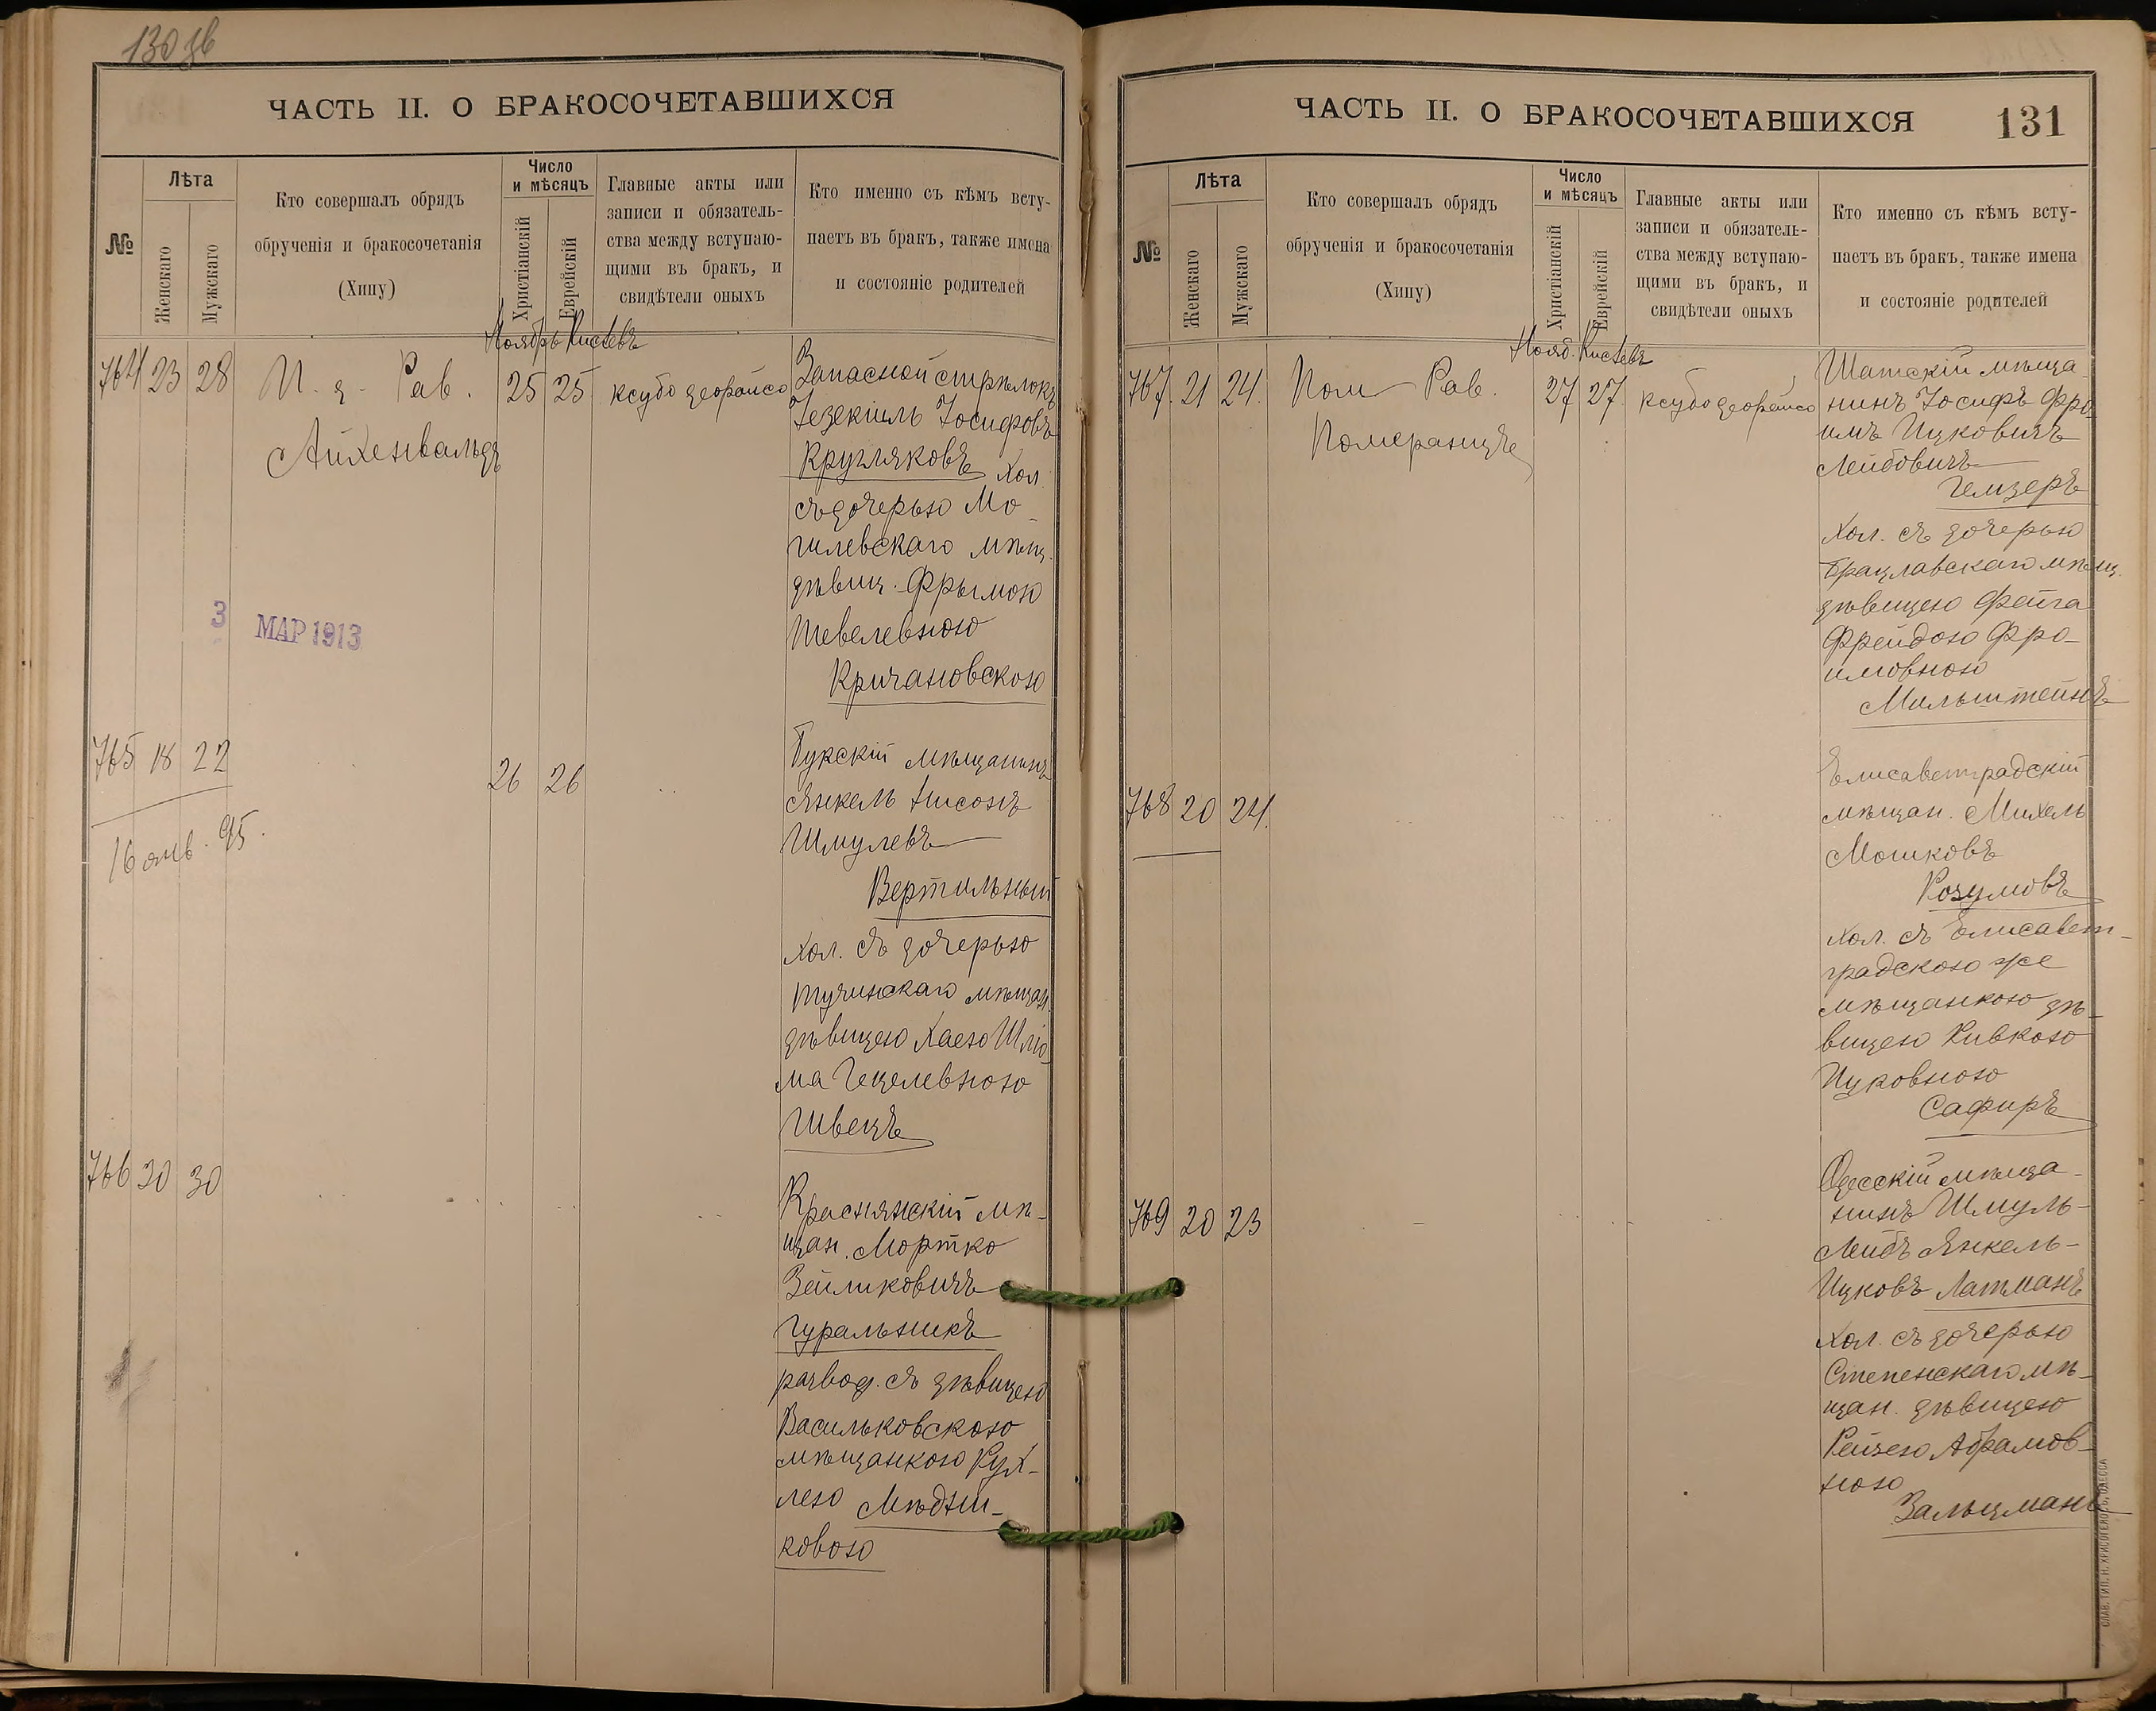 130 зв
ЧАСТЬ II. О БРАКОСОЧЕТАВШИХСЯ
№
Лѣта
Женскаго
Мужскаго
Кто совершалъ обрядъ
обрученія и бракосочетанія
(Хипу)
Число
и мѣсяцъ
Христіанскій
Еврейскій
Главные акты или
записи и обязатель-
ства между вступаю-
щими въ бракъ, и
свидѣтели оныхъ
Кто именно съ кѣмъ всту-
паетъ въ бракъ, также имена
и состояніе родителей
Ноябрь Кислевъ
764 23 28
И. д. Рав.
Айхенвальдъ
25 25
ксубо деорайсо
Запасной стрѣлокъ
Іезекіиль Іосифовъ
Кругляковъ Хол.
съ дочерью Мо-
гилевскаго мѣщ.
дѣвиц. Фрымою
Тевелевною
Кричановскою
3 МАР 1913
765 18 22
16 янв. 95.
26 26
Букскій мѣщанинъ
Янкель Нисонъ
Шмулевъ
Вертильный
хол. съ дочерью
Тучинскаго мѣщан.
дѣвицею Хаею Шлiо-
ма Гецелевною
Швецъ
766 30 30
Краснянскій мѣ-
щан. Мортко
Зейликовичъ
Гуральникъ
развод. съ дѣвицею
Васильковскою
мѣщанкою Рух-
лею Мѣдни-
ковою
ЧАСТЬ II. О БРАКОСОЧЕТАВШИХСЯ
131
№
Лѣта
Женскаго
Мужскаго
Кто совершалъ обрядъ
обрученія и бракосочетанія
(Хипу)
Число
и мѣсяцъ
Христіанскій
Еврейскій
Главные акты или
записи и обязатель-
ства между вступаю-
щими въ бракъ, и
свидѣтели оныхъ
Кто именно съ кѣмъ всту-
паетъ въ бракъ, также имена
и состояніе родителей
Нояб. Кислевъ
767. 21 24.
Пом Рав.
Померанцъ
27 27.
ксубо деорайсо
Шатскій мѣща-
нинъ Іосифъ Фро-
имъ Ицковичъ
Лейбовичъ
Гемзеръ
Хол. съ дочерью
Брацлавскаго мѣщ.
дѣвицею Фейга
Фрейдою Фро-
имовною
Мильштейнъ
768 20 24.
Елисаветградскій
мѣщан. Михель
Мошковъ
Розумовъ
хол. съ Елисавет-
градскою же
мѣщанкою дѣ-
вицею Ривкою
Ицковною
Сафиръ
769 20 23
Одесскій мѣща-
нинъ Шмуль-
Лейбъ Янкель-
Ицковъ Латманъ
Хол. съ дочерью
Степенскаго мѣ-
щан. дѣвицею
Рейзею Абрамов-
ною
Зальцманъ
СЛАВ. ТИП. Н. ХРИСОГЕЛОСЪ, ОДЕССА